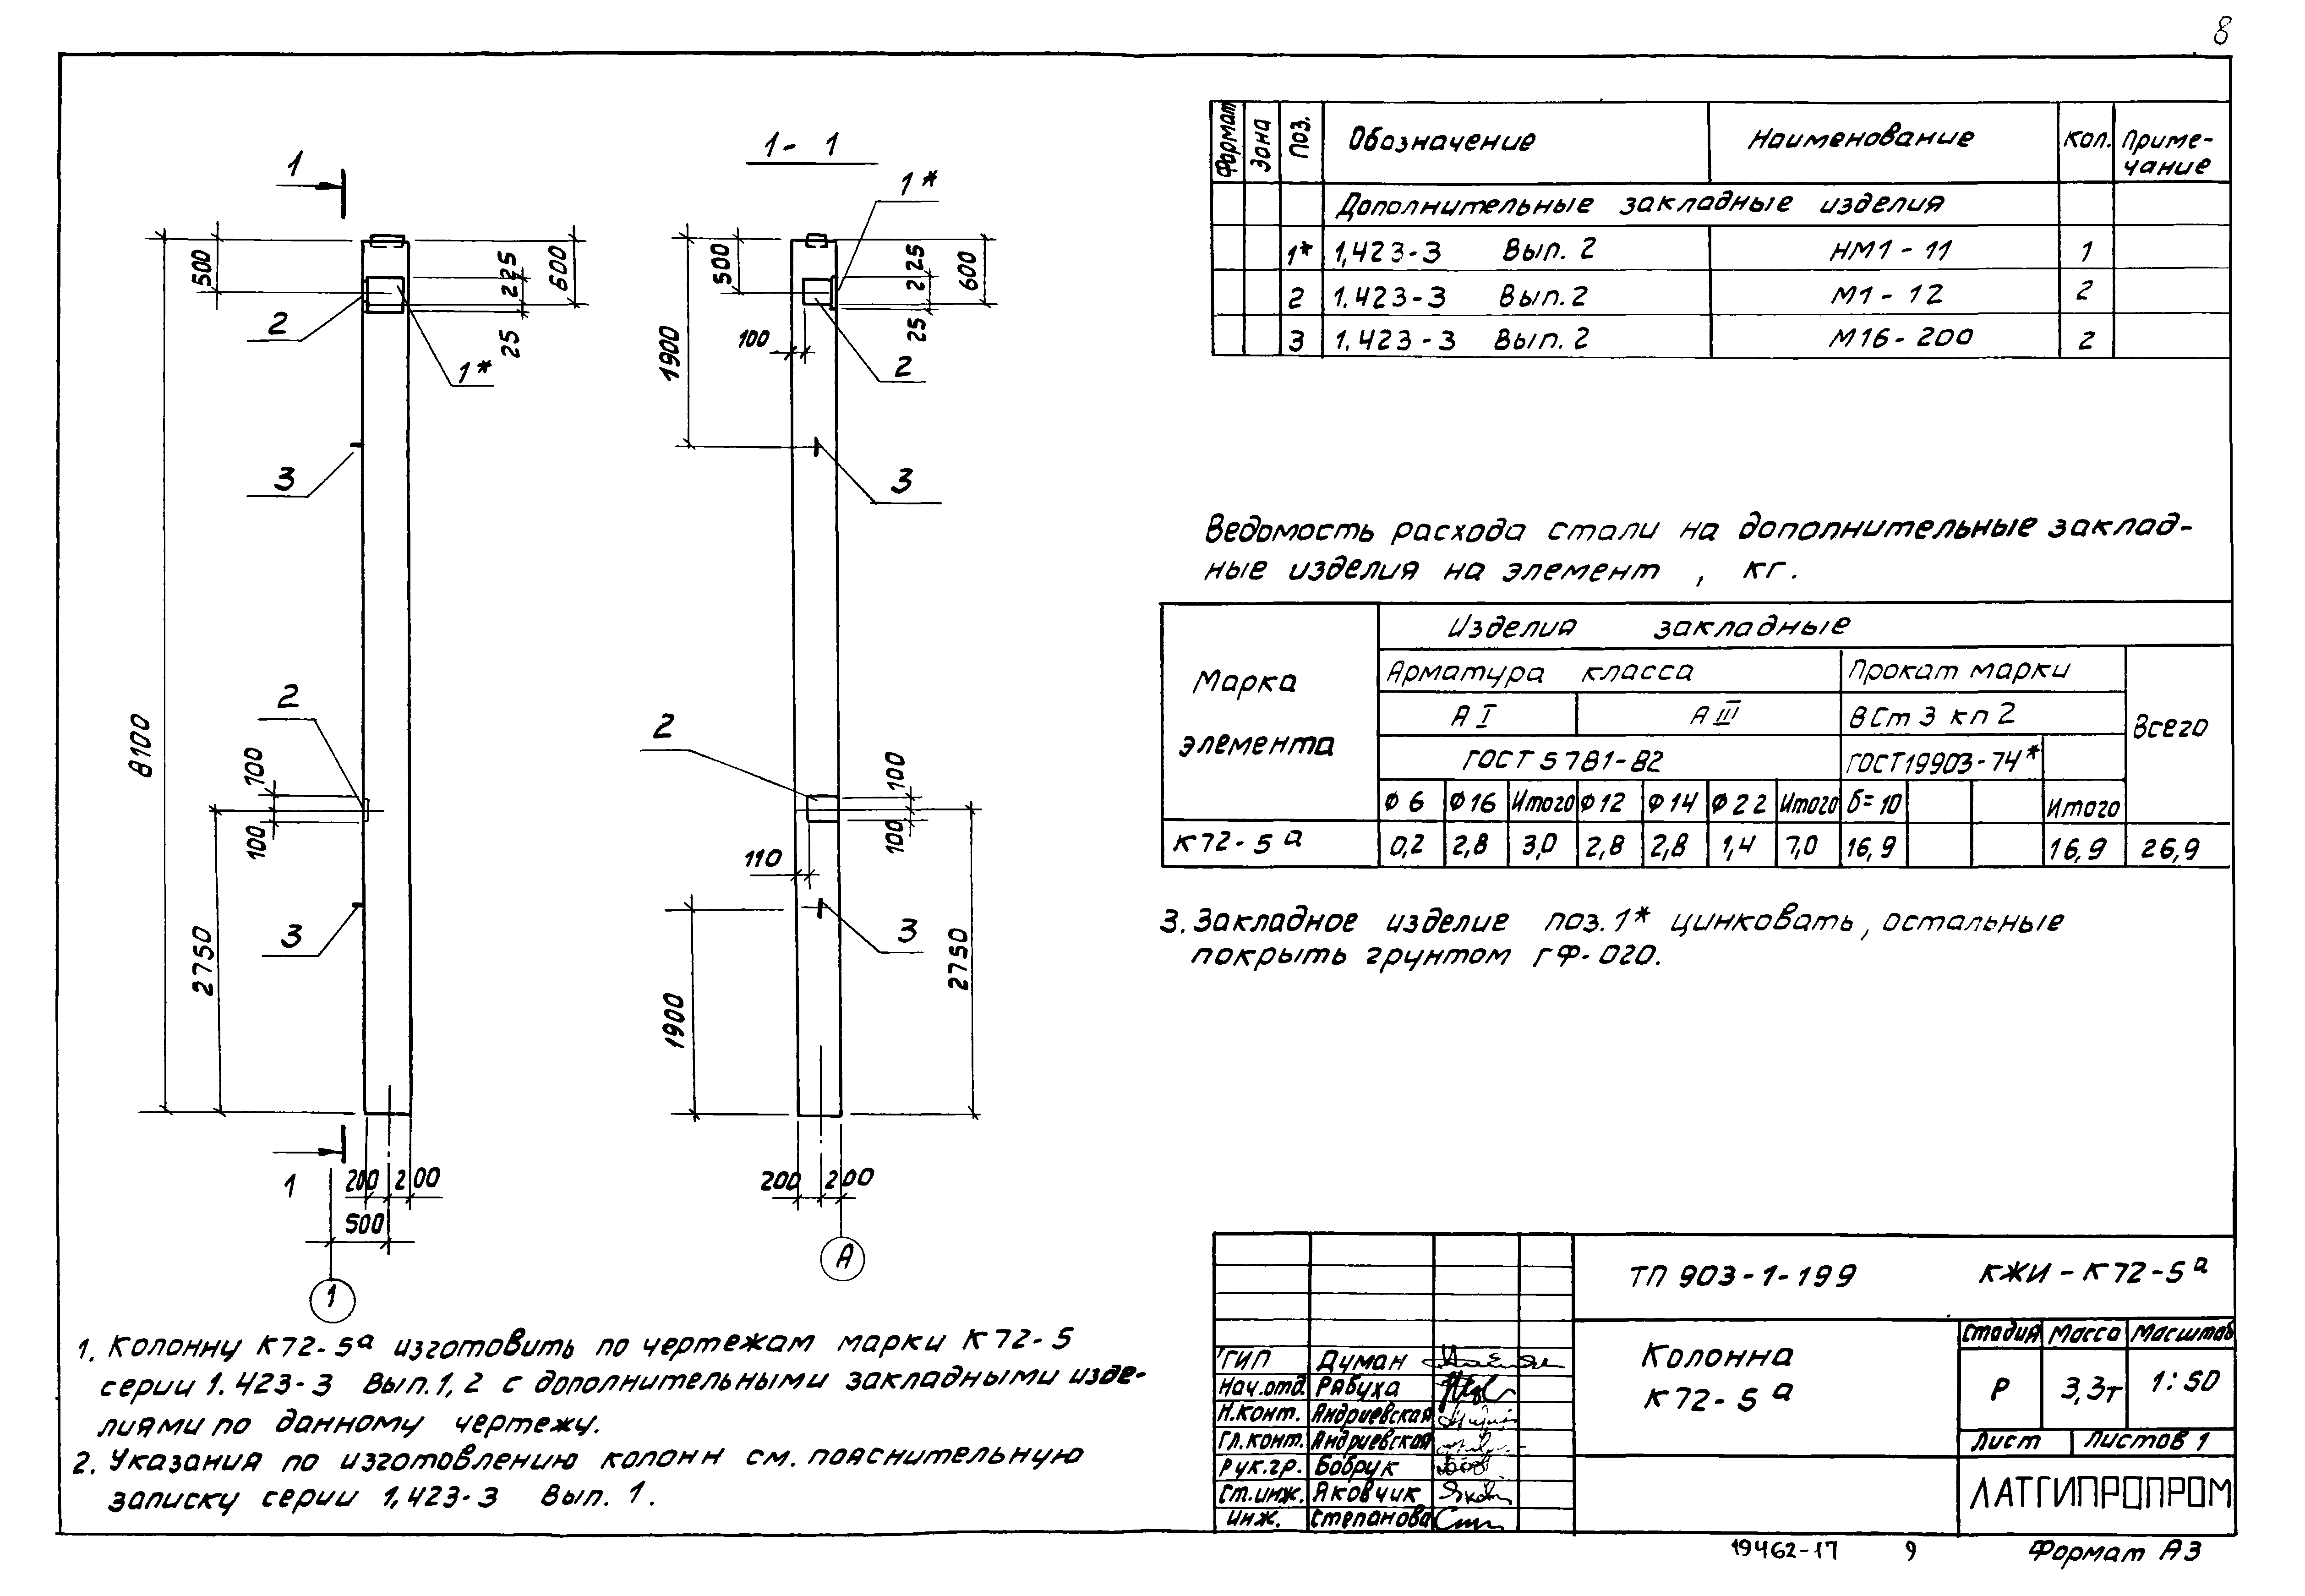 8
1
1 - 1
1*
500
225
600
25
2
1*
500
225
600
25
100
2
1900
3
3
8100
2
100
100
2750
3
2
100
100
110
3
2750
1900
1
200 200
500
1
200 200
А
Формат Зона Поз. Обозначение Наименование Кол. Приме-
чание
Дополнительные закладные изделия
1* 1,423-3 Вып. 2 НМ1-11 1
2 1.423-3 Вып. 2 М1-12 2
3 1.423-3 Вып. 2 М16-200 2
Ведомость расхода стали на дополнительные заклад-
ные изделия на элемент , кг.
Марка
элемента
Изделия закладные
Арматура класса Прокат марки
А I А III ВСт 3 кп 2 Всего
ГОСТ 5781-82 ГОСТ 19903-74*
Ф 6 Ф 16 Итого Ф 12 Ф 14 Ф 22 Итого δ=10 Итого
К72-5а 0,2 2,8 3,0 2,8 2,8 1,4 7,0 16,9 16,9 26,9
3. Закладное изделие поз. 1* цинковать, остальные
покрыть грунтом ГФ-020.
1. Колонну К72-5а изготовить по чертежам марки К72-5
серии 1.423-3 Вып. 1, 2 с дополнительными закладными изде-
лиями по данному чертежу.
2. Указания по изготовлению колонн см. пояснительную
записку серии 1,423-3 Вып. 1.
ТП 903-1-199 КЖИ-К72-5а
Колонна
К72-5а
Стадия Масса Масштаб
Р 3,3т 1:50
Лист Листов 1
ЛАТГИПРОПРОМ
ГИП Думан
Нач.отд. Рябуха
Н.конт. Андриевская
Гл.конт. Андриевская
Рук.гр. Бобрук
Ст.инж. Яковчик
Инж. Степанова
19462-17 9 Формат А3